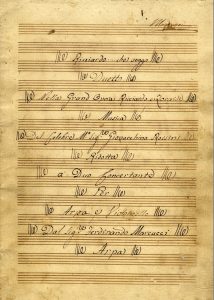 Ricciardo che veggo
Duetto
Nella Grand Opera Ricciardo e Zoraide
Musica
Del Celebre M.º Sig.re Gioacchino Rossini
Ridotta
a Duo Concertante
Per
Arpa e Violoncello
Dal Sig.re Ferdinando Marcucci
Arpa